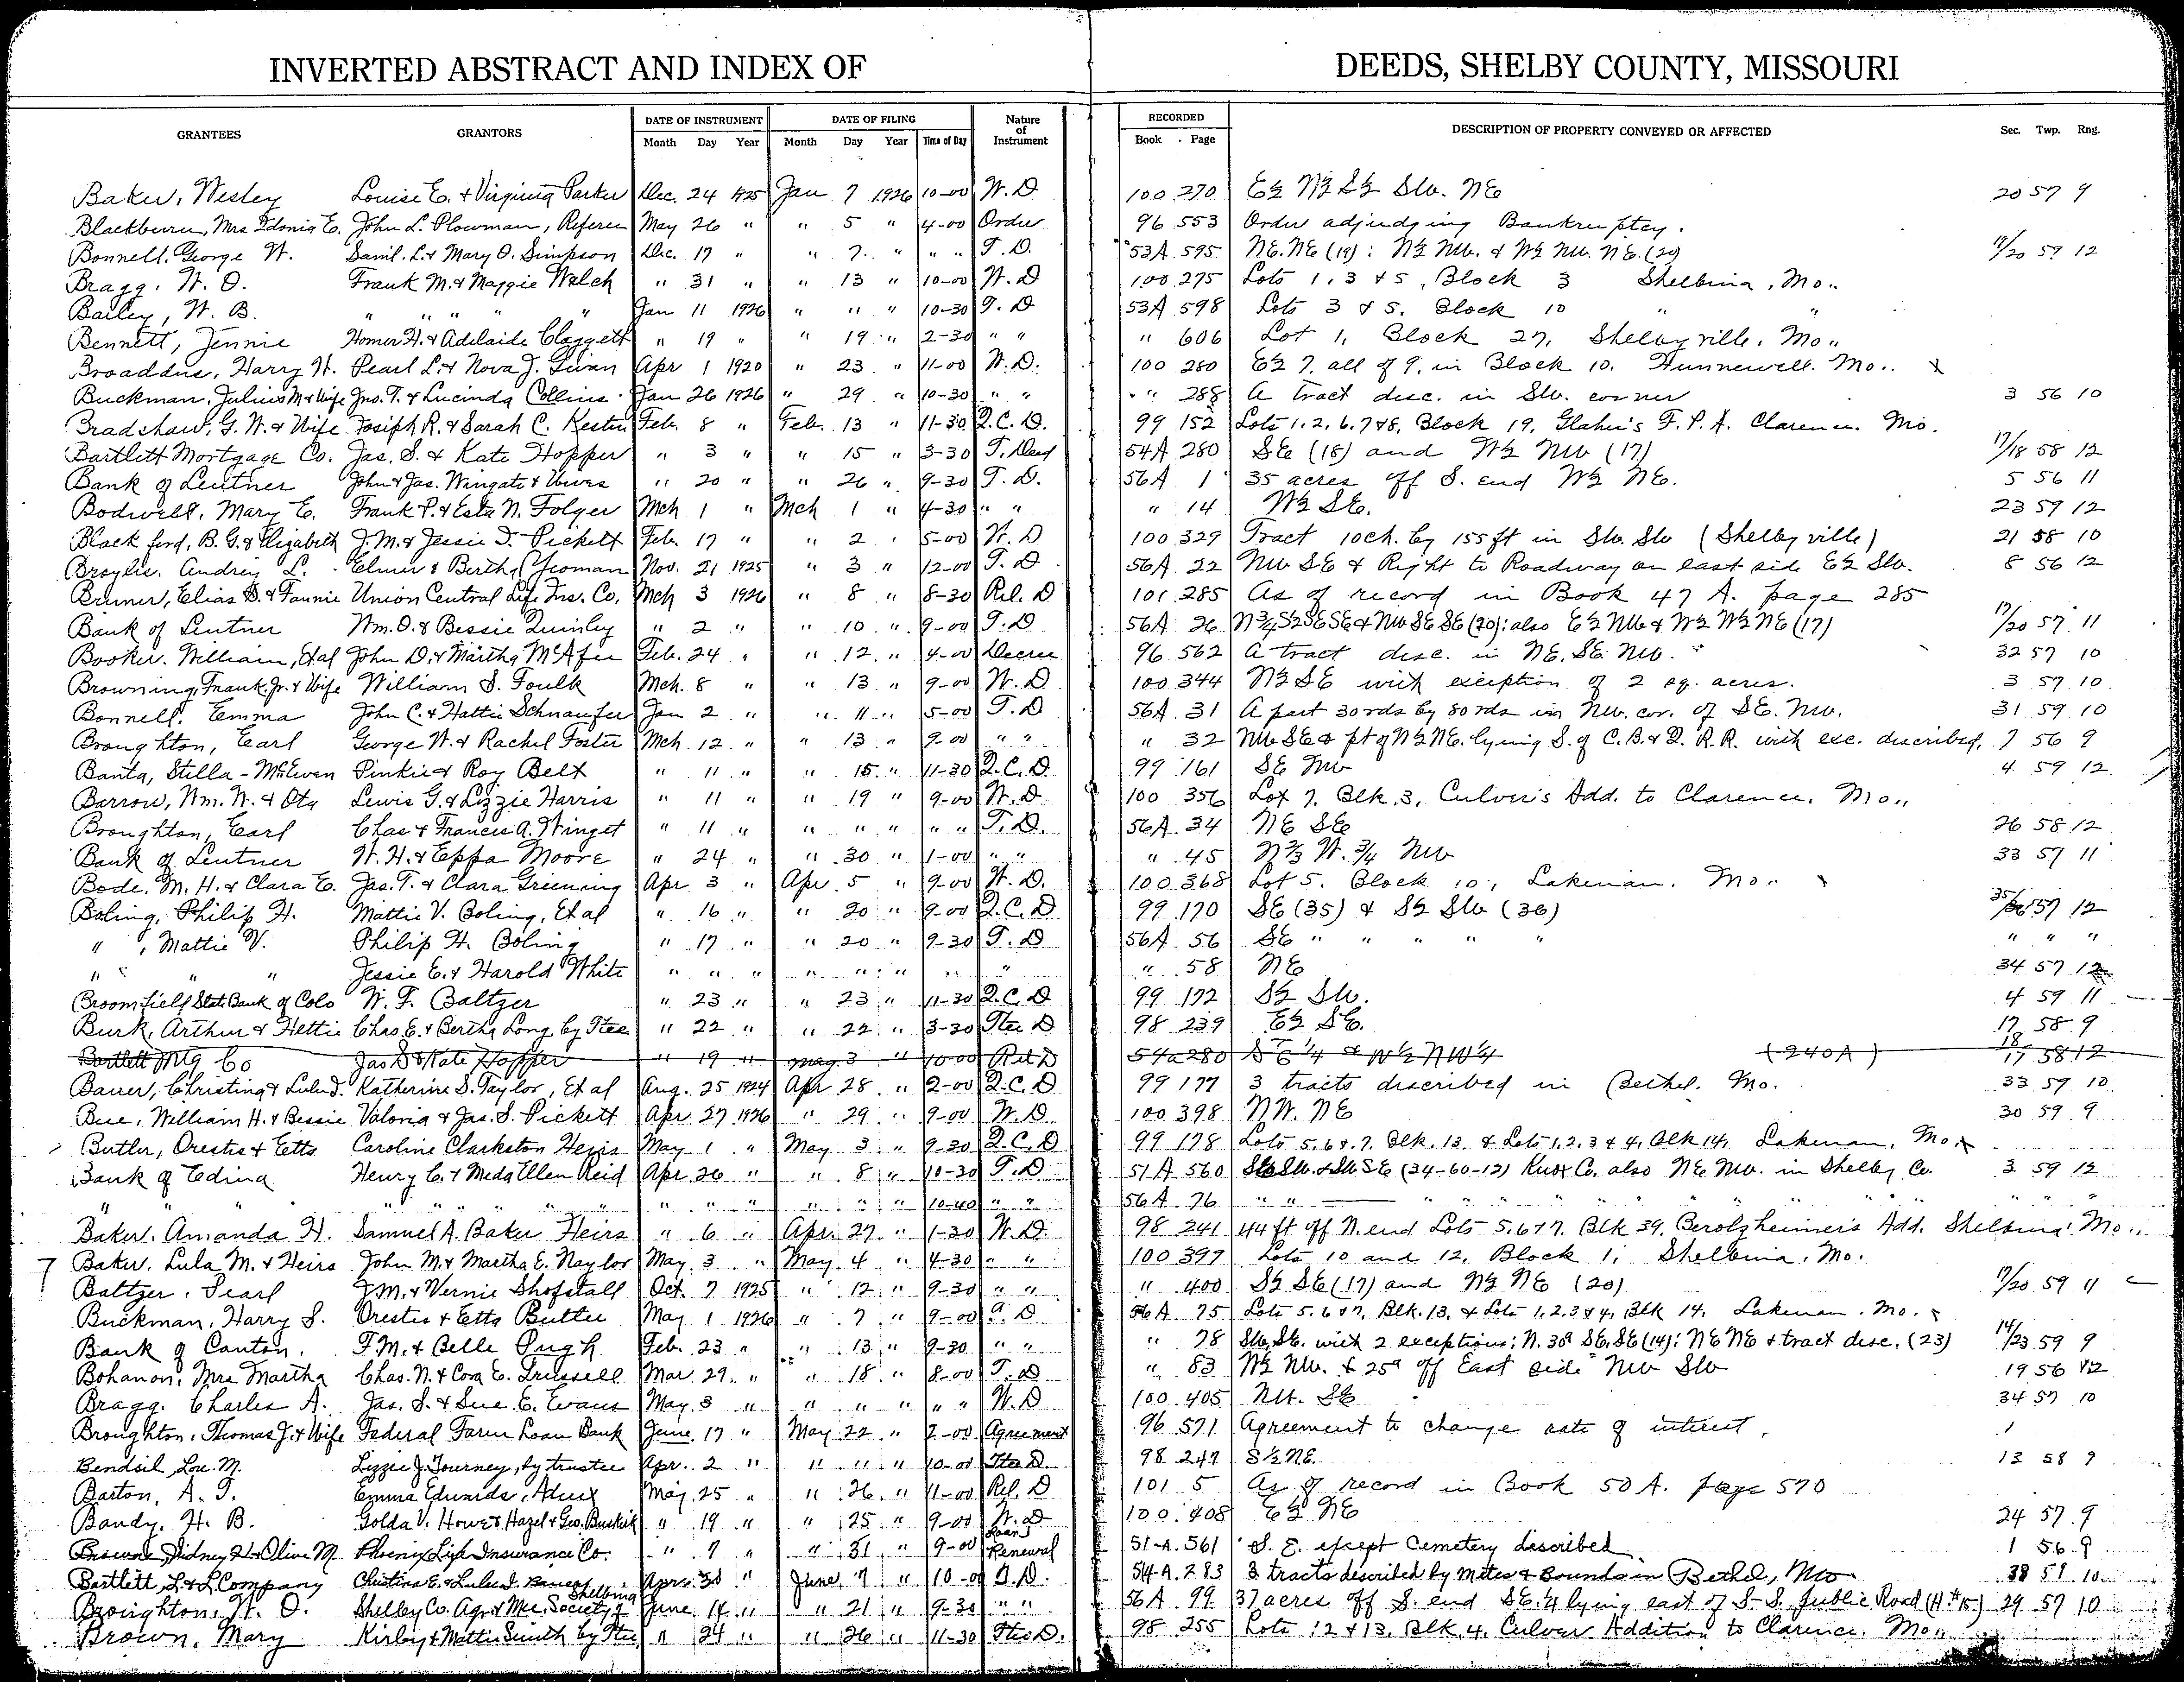 INVERTED ABSTRACT AND INDEX OF DEEDS, SHELBY COUNTY, MISSOURI
GRANTEES GRANTORS DATE OF INSTRUMENT DATE OF FILING Nature of Instrument RECORDED DESCRIPTION OF PROPERTY CONVEYED OR AFFECTED Sec. Twp. Rng.
Month Day Year Month Day Year Time of Day Book Page
Baker, Wesley Louise E. & Virginia Parker Dec. 24 1925 Jan 7 1926 10-00 W. D 100 270 E½ N½ S½ SW. NE 20 57 9
Blackburn, Mrs Idonia E. John L. Plowman, Referee May 26 " " 5 " 4-00 Order 96 553 Order adjudging Bankruptcy.
Bonnell, George W. Saml. L. & Mary O. Simpson Dec. 17 " " 7 " " " T. D. 53A 595 NE. NE (19): N½ NW. & W½ NW. NE. (20) 19/20 59 12
Bragg, W. O. Frank M. & Maggie Welch " 31 " " 13 " 10-00 W. D 100 275 Lots 1, 3 & 5, Block 3 Shelbina, Mo..
Bailey, W. B. " " " " " Jan 11 1926 " " " 10-30 T. D 53A 598 Lots 3 & 5. Block 10 " "
Bennett, Jennie Homer H. & Adelaide Claggett " 19 " " 19 " 2-30 " " " 606 Lot 1, Block 27, Shelbyville, Mo..
Broaddus, Harry H. Pearl L. & Nova J. Givan Apr 1 1920 " 23 " 11-00 W. D. 100 280 E½ 7, all of 9, in Block 10. Hunnewell. Mo.. x
Buckman, Julius M & Wife Jno. T. & Lucinda Collins Jan 26 1926 " 29 " 10-30 " " " 288 A tract desc. in SW. corner 3 56 10
Bradshaw, G. W. & Wife Joseph R. & Sarah C. Kesten Feb. 8 " Feb. 13 " 11-30 Q. C. D. 99 152 Lots 1, 2, 6, 7 & 8, Block 19, F. P. A. Clarence. Mo.
Bartlett Mortgage Co. Jas. S. & Kate Hopper " 3 " " 15 " 3-30 T. Deed 54A 280 SE (18) and W½ NW (17) 17/18 58 12
Bank of Lentner John & Jas. Wingate & Wives " 20 " " 26 " 9-30 T. D. 56A 1 35 acres off S. end W½ NE. 5 56 11
Bodwell, Mary E. Frank P. & Esta N. Folger Mch 1 " Mch 1 " 4-30 " " " 14 W½ SE. 23 59 12
Blackford, B. G. & Elizabeth J. M. & Jessie D. Pickett Feb. 17 " " 2 " 5-00 W. D 100 329 Tract 10 ch. by 155 ft in SW. SW (Shelbyville) 21 58 10
Audrey L. Elmer & Bertha Yeoman Nov. 21 1925 " 3 " 12-00 T. D 56A 22 NW SE & Right to Roadway on east side E½ SW. 8 56 12
Bruner, Elias D. & Fannie Union Central Life Ins. Co. Mch 3 1926 " 8 " 8-30 Rel. D 101 285 As of record in Book 47 A. page 285
Bank of Lentner Wm. O. & Bessie Quinley " 2 " " 10 " 9-00 T. D 56A 26 N¾ S½ SE SE & NW SE SE (20): also E½ NW & W½ W½ NE (17) 17/20 57 11
Booker, William, Etal John D. & Martha McAfee Feb. 24 " " 12 " 4-00 Decree 96 562 A tract desc. in NE. SE. NW. 32 57 10
Browning, Frank, Jr. & Wife William S. Foulk Mch. 8 " " 13 " 9-00 W. D 100 344 N½ SE with exception of 2 sq. acres. 3 57 10
Bonnell, Emma John C. & Hattie Schnaufer Jan 2 " " 11 " 5-00 T. D 56A 31 A part 30 rds by 80 rds in NW. cor. of SE. NW. 31 59 10
Broughton, Earl George W. & Rachel Foster Mch. 12 " " 13 " 9-00 " " " 32 NW SE & pt of W½ NE. lying S. of C. B. & Q. R. R. with exc. described. 7 56 9
Banta, Stella-McEwen Pinkie & Roy Belt " 11 " " 15 " 11-30 Q. C. D 99 161 SE NW 4 59 12
Barrow, Wm. W. & Ota Lewis G. & Lizzie Harris " 11 " " 19 " 9-00 W. D 100 356 Lot 7, Blk. 3, Culver's Add. to Clarence, Mo..
Broughton, Earl Chas & Francis A. Winget " 11 " " " " " " T. D. 56A 34 NE SE 26 58 12
Bank of Lentner W. H. & Eppa Moore " 24 " " 30 " 1-00 " " " 45 N⅔ W. ¾ NW 33 57 11
Bode, M. H. & Clara E. Jas. T. & Clara Greening Apr 3 " Apr. 5 " 9-00 W. D. 100 368 Lot 5. Block 10, Lakenan. Mo..
Boling, Philip H. Mattie V. Boling, Et al " 16 " " 20 " 9-00 Q. C. D 99 170 SE (35) & S½ SW (36) 35/36 57 12
" , Mattie V. Philip H. Boling " 17 " " 20 " 9-30 T. D 56A 56 SE " " " " " " " "
" " " Jessie E. & Harold White " " " " " " " " " 58 NE 34 57 12
Broomfield State Bank of Colo W. F. Baltzer " 23 " " 23 " 11-30 Q. C. D 99 172 S½ SW. 4 59 11
Burk, Arthur & Hettie Chas. E. & Bertha Long by Ttee " 22 " " 22 " 3-30 Ttee D 98 239 E½ SE. 17 58 9
Bartlett Mtg Co Jas S & Kate Hopper " 19 " May 3 " 10-00 Rel D 54a 280 SE¼ & W½ NW¼ (240A) 18 17 58 12
Bauer, Christina & Lulu J. Katherine S. Taylor, Et al Aug. 25 1924 Apr 28 " 2-00 Q. C. D 99 177 3 tracts described in Bethel. Mo. 33 59 10
Bue, William H. & Bessie Valoria & Jas. S. Pickett Apr 27 1926 " 29 " 9-00 W. D 100 398 NW. NE 30 59 9
Butler, Orestis & Etta Caroline Clarkston Heirs May 1 " May 3 " 9-30 Q. C. D 99 178 Lots 5, 6 & 7, Blk. 13, & Lots 1, 2, 3 & 4, Blk 14, Lakenan, Mo. x
Bank of Edina Henry C. & Meda Ellen Reid Apr 26 " " 8 " 10-30 T. D 51A 560 SE SW. & SW SE (34-60-12) Knox Co. also NE NW. in Shelby Co. 3 59 12
" " " " " " " " " " " " " 10-40 " " 56A 76 " " " " " " " " " " " "
Baker, Amanda H. Samuel A. Baker Heirs " 6 " Apr. 27 " 1-30 W. D. 98 241 44 ft off N. end Lots 5, 6 & 7, Blk 39, Berolzheimer's Add. Shelbina, Mo..
Baker, Lula M. & Heirs John M. & Martha E. Naylor May 3 " May 4 " 4-30 " " 100 397 Lots 10 and 12, Block 1, Shelbina, Mo.
Baltzer, Pearl J. M. & Vernie Shofstall Oct. 7 1925 " 12 " 9-30 " " " 400 S½ SE (17) and N½ NE (20) 17/20 59 11
Buckman, Harry S. Orestis & Etta Butler May 1 1926 " 7 " 9-00 D 56A 75 Lots 5, 6 & 7, Blk. 13, & Lots 1, 2, 3 & 4, Blk 14, Lakenan. Mo.
Bank of Canton. F. M. & Belle Pugh Feb. 23 " " 13 " 9-30 " " " 78 SW. SE. with 2 exceptions: N. 30ª SE. SE (14): NE NE & tract desc. (23) 14/23 59 9
Bohanon, Mrs Martha Chas. N. & Cora E. Trussell Mar 29 " " 18 " 8-00 T. D " 83 W½ NW. & 25ª off East side NW SW 19 56 12
Bragg, Charles A. Jas. S. & Sue E. Evans May 3 " " " " " " W. D 100 405 NW. SE 34 57 10
Broughton, Thomas J. & Wife Federal Farm Loan Bank June 17 " May 22 " 2-00 Agreement 96 571 Agreement to change rate of interest.
Bendsil, Lou. M. Lizzie J. Tourney, by trustee Apr. 2 " " " " 10-00 Ttee D. 98 247 S½ NE 13 58 9
Barton, A. T. Emma Edwards, Admx May 25 " " 26 " 11-00 Rel. D 101 5 As of record in Book 50 A. page 570
Bandy, H. B. Golda V. Howe & Hazel & Geo. " 19 " " 25 " 9-00 W. D 100 408 E½ NE 24 57 9
Browne, Sidney & Olive M. Phoenix Life Insurance Co. " 7 " " 31 " 9-00 Loan Renewal 51-A 561 S. E. except Cemetery described 1 56 9
Bartlett, L. & L. Company Christina E. & Lulu J. Bauer Apr. 30 " June 7 " 10-00 T. D. 54-A 283 3 tracts described by metes & bounds in Bethel, Mo 33 59 10
Broughton, W. O. Shelby Co. Agr. & Mec. Society of Shelbina June 14 " " 21 " 9-30 " " 56A 99 37 acres off S. end SE. ¼ lying east of S-S. public Road (H#15) 29 57 10
Brown, Mary Kirby & Mattie Smith by Ttee " 24 " " 26 " 11-30 Ttee D. 98 255 Lots 12 & 13, Blk. 4, Culver Addition to Clarence. Mo..